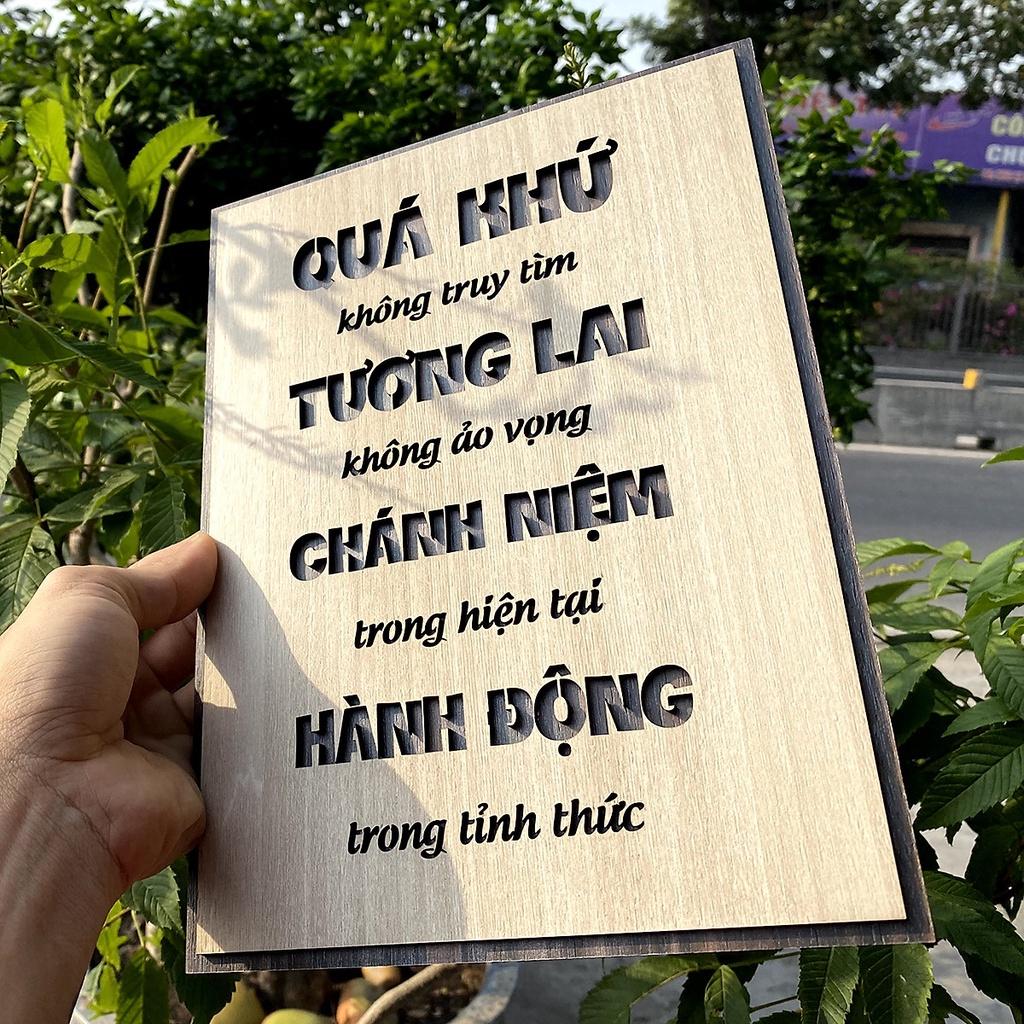 QUÁ KHỨ
không truy tìm
TƯƠNG LAI
không ảo vọng
CHÁNH NIỆM
trong hiện tại
HÀNH ĐỘNG
trong tỉnh thức